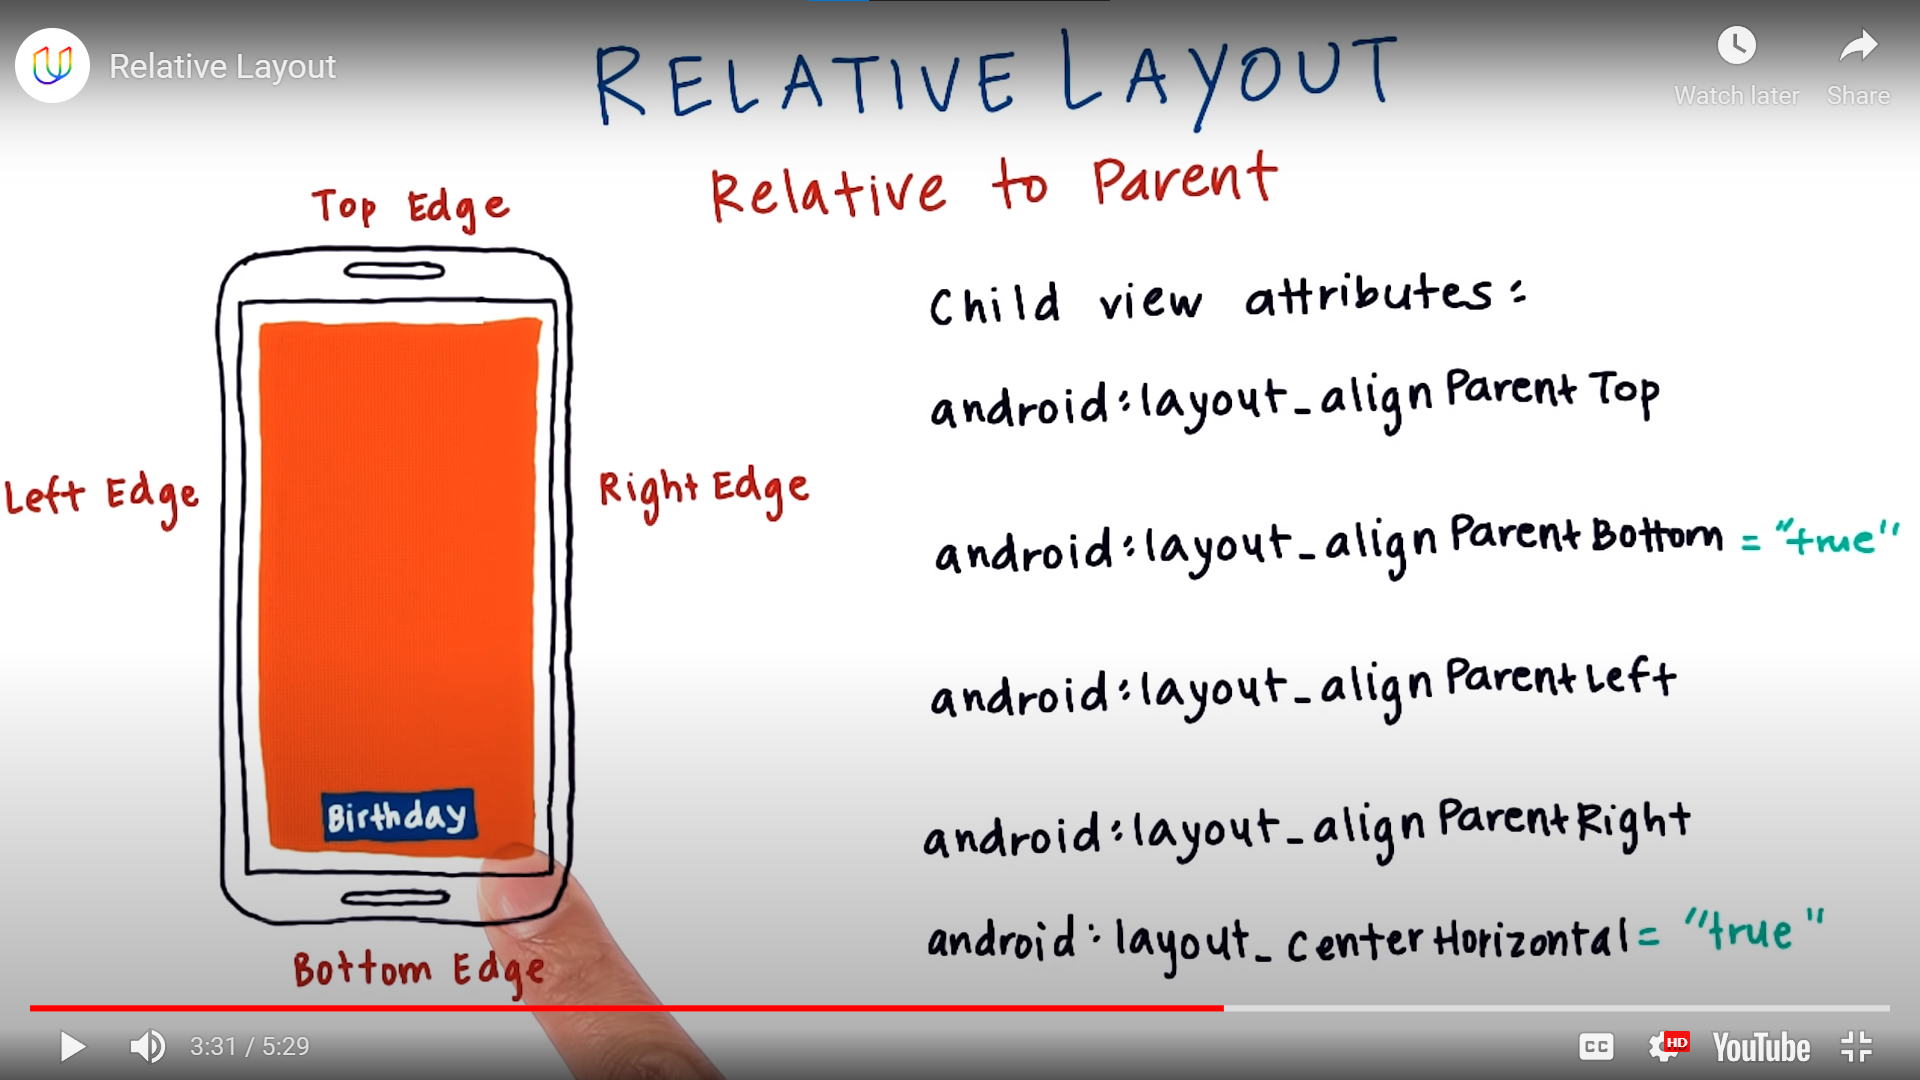 Relative Layout
RELATIVE LAYOUT
Watch later
Share
Relative to Parent
Top Edge
Left Edge
Right Edge
Birthday
Bottom Edge
Child view attributes:
android:layout_alignParentTop
android:layout_alignParentBottom = "true"
android:layout_alignParentLeft
android:layout_alignParentRight
android:layout_centerHorizontal = "true"
3:31 / 5:29
CC
HD
YouTube